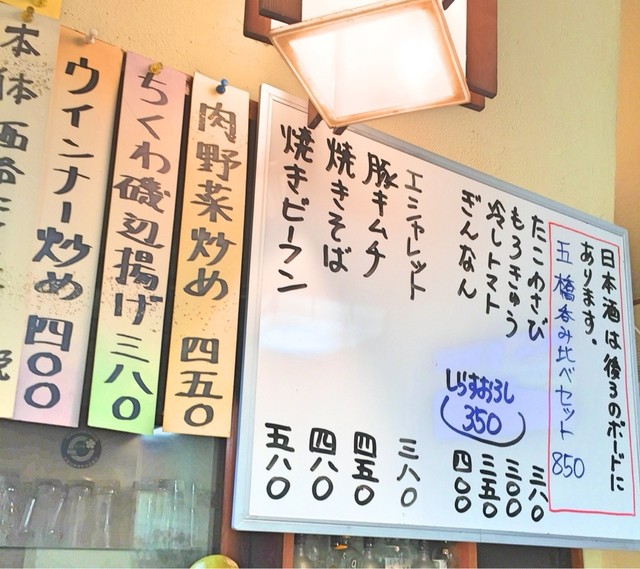 日本酒は後ろのボードに
あります。
五橋呑み比べセット 850
たこわさび 三八〇
もろきゅう 三〇〇
冷しトマト 三五〇
ぎんなん 四〇〇
しらすおろし
350
エシャレット 三八〇
豚キムチ 四五〇
焼きそば 四八〇
焼きビーフン 五八〇
肉野菜炒め 四五〇
ちくわ磯辺揚げ 三八〇
ウィンナー炒め 四〇〇
本体価格
税